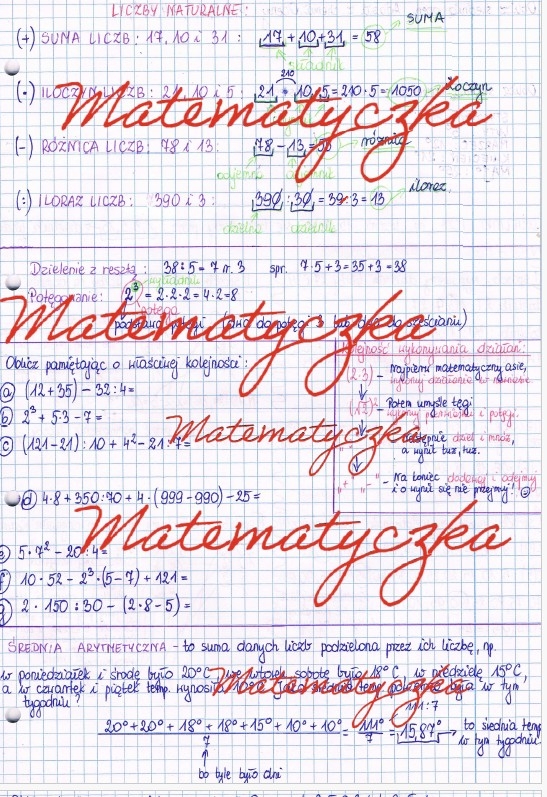 LICZBY NATURALNE:
(+) SUMA LICZB: 17, 10 i 31 : 17 + 10 + 31 = 58 SUMA
składnik
210
(·) ILOCZYN LICZB: 21, 10 i 5 : 21 · 10 · 5 = 210 · 5 = 1050 iloczyn
Matematyczka
(-) RÓŻNICA LICZB: 78 i 13: 78 - 13 = różnica
odjemna odjemnik
(:) ILORAZ LICZB: 390 i 3 : 390 : 30 = 39:3 = 13 iloraz
dzielna dzielnik
Dzielenie z resztą : 38:5 = 7 r. 3 spr. 7·5+3 = 35+3 = 38
wykładnik
Potęgowanie: 2³ = 2·2·2 = 4·2 = 8
potęga
Matematyczka
podstawa potęgi
Oblicz pamiętając o właściwej kolejności :
a) (12+35) - 32:4 =
b) 2³ + 5·3 - 7 =
c) (121-21) : 10 + 4² - 21 : 7 =
Matematyczka
d) 4·8 + 350:70 + 4·(999-990) - 25 =
Kolejność wykonywania działań:
(2·3) - Najpierw matematyczny asie,
wykonaj działanie w nawiasie.
- Potem umyśle tęgi
wykonuj pierwiastki i potęgi.
- Następnie dziel i mnóż,
a wynik tuż, tuż.
"+" "-" - Na koniec dodawaj i odejmuj
i o wynik się nie przejmuj!
Matematyczka
e) 5·7² - 20:4 =
f) 10·52 - 2³·(5-7) + 121 =
g) 2·150:30 - (2·8-5) =
ŚREDNIA ARYTMETYCZNA - to suma danych liczb podzielona przez ich liczbę, np.
w poniedziałek i środę było 20°C, we wtorek i sobotę było 18°C, w niedzielę 15°C,
a w czwartek i piątek temp. wynosiła 10°C. Jaka średnia temp. powietrza była w tym
tygodniu?
Matematyczka
111:7
20°+20°+18°+18°+15°+10°+10° = 111° = 15,87° to średnia temp.
7 7 w tym tygodniu.
bo tyle było dni